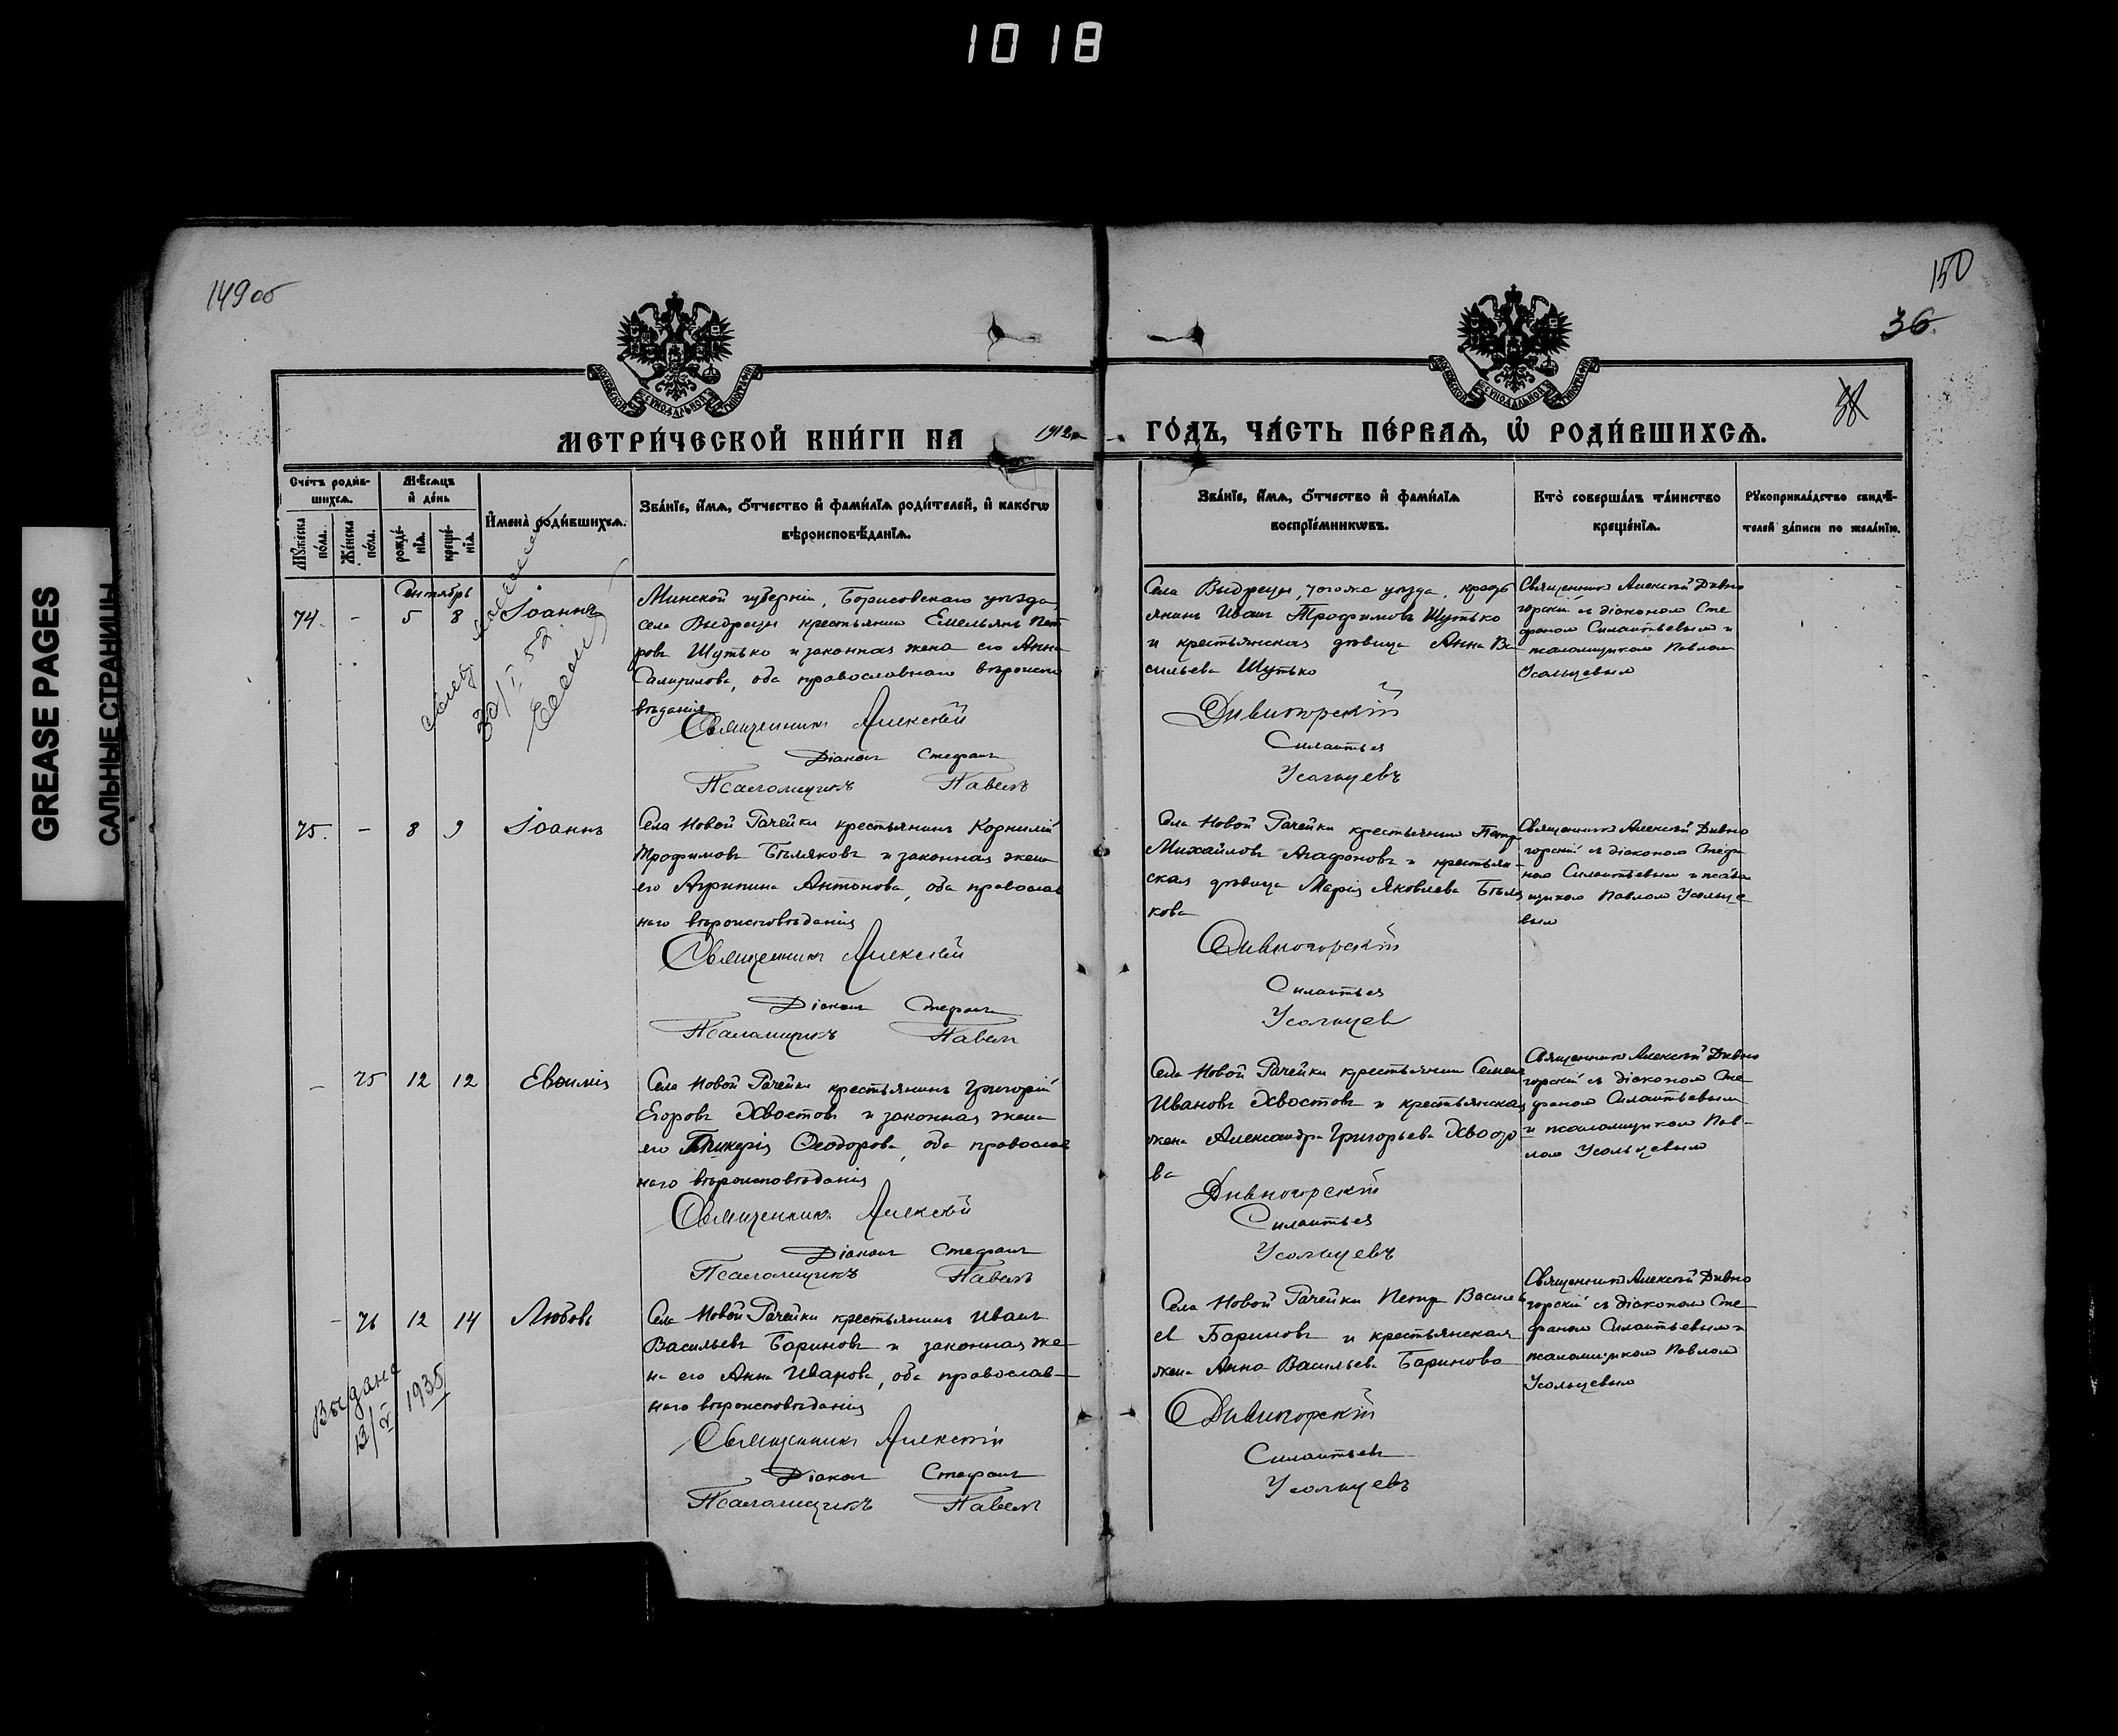 1018
GREASE PAGES
САЛЬНЫЕ СТРАНИЦЫ
149 об
150
36.
38
МОСКОВСКОЙ СѴНОДАЛЬНОЙ ТИПОГРАФІИ
МОСКОВСКОЙ СѴНОДАЛЬНОЙ ТИПОГРАФІИ
МЕТРИ́ЧЕСКОЙ КНИ́ГИ НА 1912 ГО́ДЪ, ЧА́СТЬ ПЕ́РВАѦ, Ѡ҆ РОДИ́ВШИХСѦ.
Сче́тъ роди́в-
шихсѧ.
Мꙋ́жеска по́ла.
Же́нска по́ла.
Мѣ́сѧцъ
и҆ де́нь
рожде́-
нїѧ.
креще́-
нїѧ.
И҆мена̀ роди́вшихсѧ.
Зва́нїе, и҆́мѧ, ѻ҆́тчество и҆ фами́лїѧ роди́телей, и҆ како́гѡ
вѣроисповѣ́данїѧ.
Зва́нїе, и҆́мѧ, ѻ҆́тчество и҆ фами́лїѧ
воспрїе́мникѡвъ.
Кто̀ соверша́лъ та́инство
креще́нїѧ.
Рꙋкоприкла́дство свидѣ́-
телей за́писи по жела́нїю.
Сентябрь
74. - 5 8 Іоаннъ
30/I 52.
Минской губерніи, Борисовскаго уѣзда,
села Выдрецы крестьянин Емельянъ Пет
ровъ Шутько и законная жена его Анна
, оба православнаго вѣроиспо
вѣданія
Священникъ Алексѣй
Діаконъ Стефанъ
Псаломщикъ Павелъ
Села Выдрецы, тогоже уѣзда, кресть
янинъ Иванъ Трофимовъ Шутько
и крестьянская дѣвица Анна Ва
сильева Шутько
Дивногорскій
Силантьев
Усольцевъ
Священникъ Алексѣй Дивно
горскій съ діакономъ Сте
фаномъ Силантьевымъ и
псаломщикомъ Павломъ
Усольцевымъ
75. - 8 9 Іоаннъ
Села Новой Рачейки крестьянинъ Корнилій
Трофимовъ Бѣляковъ и законная жена
его Агрипина Антонова, оба православ
наго вѣроисповѣданія
Священникъ Алексѣй
Діаконъ Стефанъ
Псаломщикъ Павелъ
Села Новой Рачейки крестьянинъ Петръ
Михайловъ Агафоновъ и крестьян-
ская дѣвица Марія Яковлева Бѣля
кова
Дивногорскій
Силантьев
Усольцев
Священникъ Алексѣй Дивно
горскій съ діакономъ Стефа
номъ Силантьевымъ и псалом
щикомъ Павломъ Усольце
вымъ
- 75 12 12 Евѳимія
Села Новой Рачейки крестьянинъ Григорій
Егоровъ Хвостовъ и законная жена
его Гликерія Ѳеодорова, оба православ
наго вѣроисповѣданія
Священникъ Алексѣй
Діаконъ Стефанъ
Псаломщикъ Павелъ
Села Новой Рачейки крестьянин Семенъ
Ивановъ Хвостовъ и крестьянская
жена Александра Григорьева Хвосто
ва
Дивногорскій
Силантьев
Усольцевъ
Священникъ Алексѣй Дивно
горскій съ діакономъ Сте-
фаномъ Силантьевымъ
и псаломщикомъ Пав-
ломъ Усольцевымъ
- 76 12 14 Любовь
Выдана
13/V 1935
Села Новой Рачейки крестьянинъ Иванъ
Васильевъ Бариновъ и законная же-
на его Анна Иванова, оба православ-
наго вѣроисповѣданія
Священникъ Алексѣй
Діаконъ Стефанъ
Псаломщикъ Павелъ
Села Новой Рачейки Петръ Василь
Бариновъ и крестьянская
жена Анна Васильева Баринова
Дивногорскій
Силантьевъ
Усольцевъ
Священникъ Алексѣй Дивно
горскій съ діакономъ Сте-
фаномъ Силантьевымъ и
псаломщикомъ Павломъ
Усольцевымъ